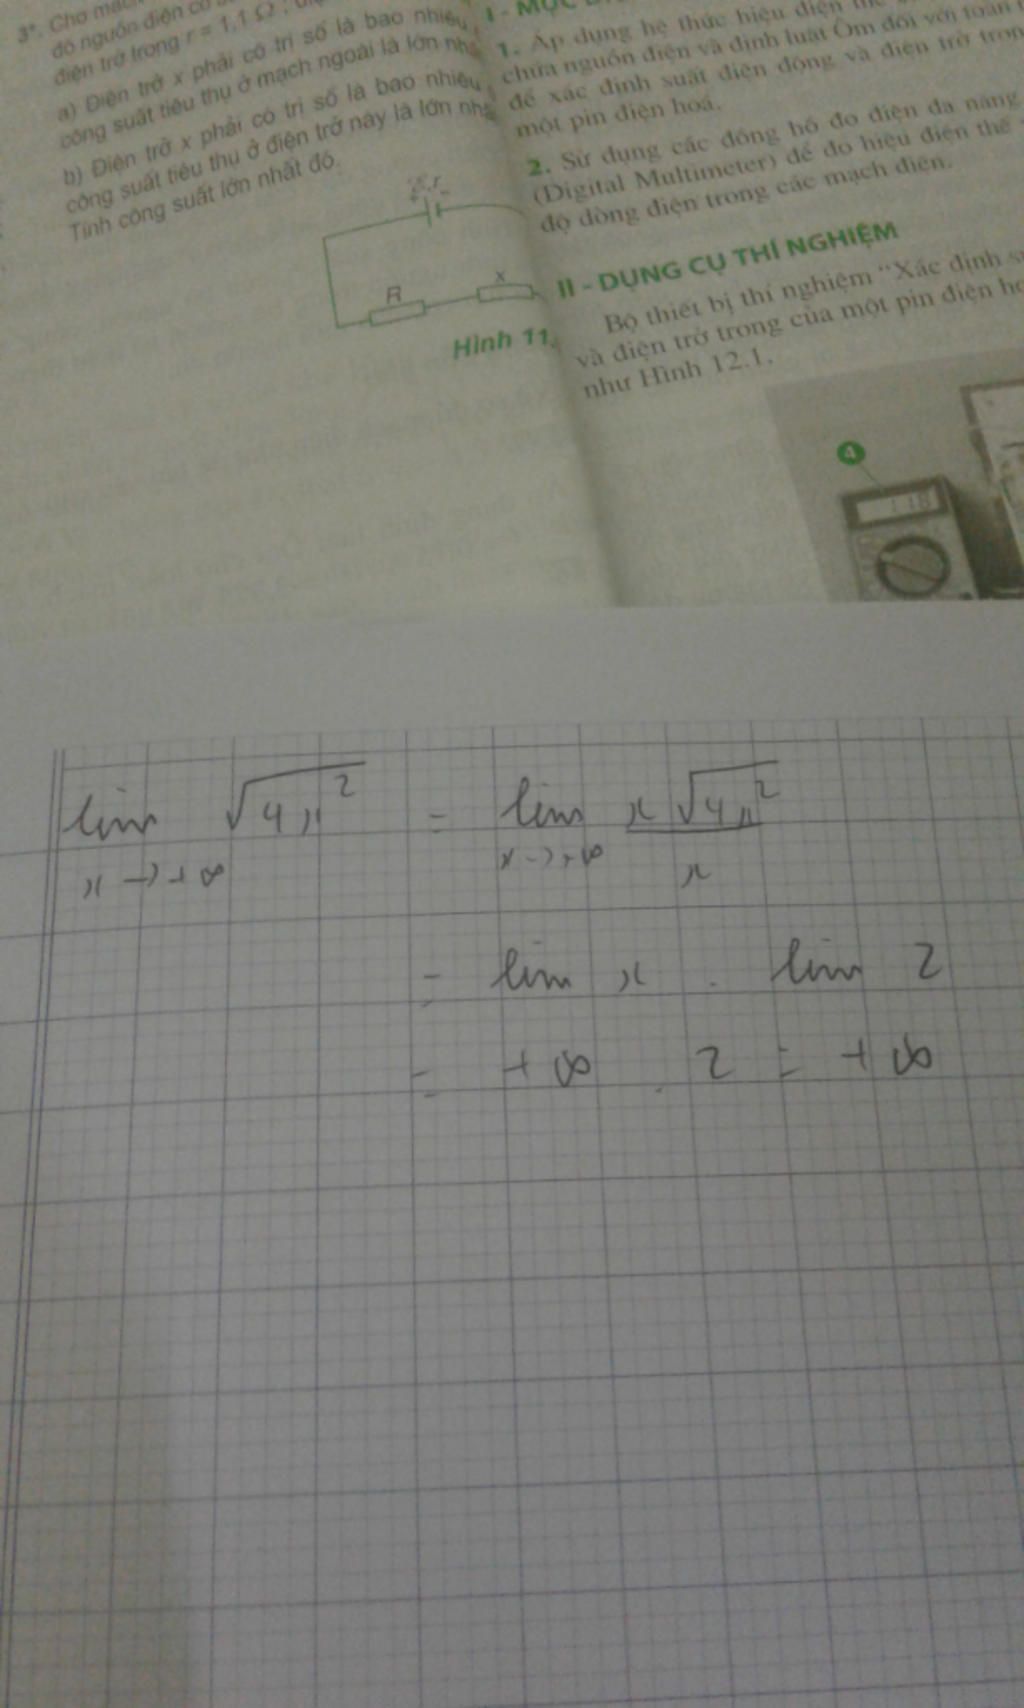 3*. Cho mạch
điện trở trong r = 1,1 Ω ;
a) Điện trở x phải có trị số là bao nhiêu
công suất tiêu thụ ở mạch ngoài là lớn
b) Điện trở x phải có trị số là bao nhiêu
công suất tiêu thụ ở điện trở này là lớn
Tính công suất lớn nhất đó.
R
x
Hình 11.
I - MỤC
1. Áp dụng hệ thức hiệu điện
chứa nguồn điện và định luật Ôm đối với toàn
để xác định suất điện động và điện trở
một pin điện hoá.
2. Sử dụng các đồng hồ đo điện đa năng
(Digital Multimeter) để đo hiệu điện thế
độ dòng điện trong các mạch điện.
II - DỤNG CỤ THÍ NGHIỆM
Bộ thiết bị thí nghiệm "Xác định
và điện trở trong của một pin điện
như Hình 12.1.
4
lim √4x² = lim x√4x²
x → +∞ x → +∞ x
= lim x . lim 2
= +∞ . 2 = +∞